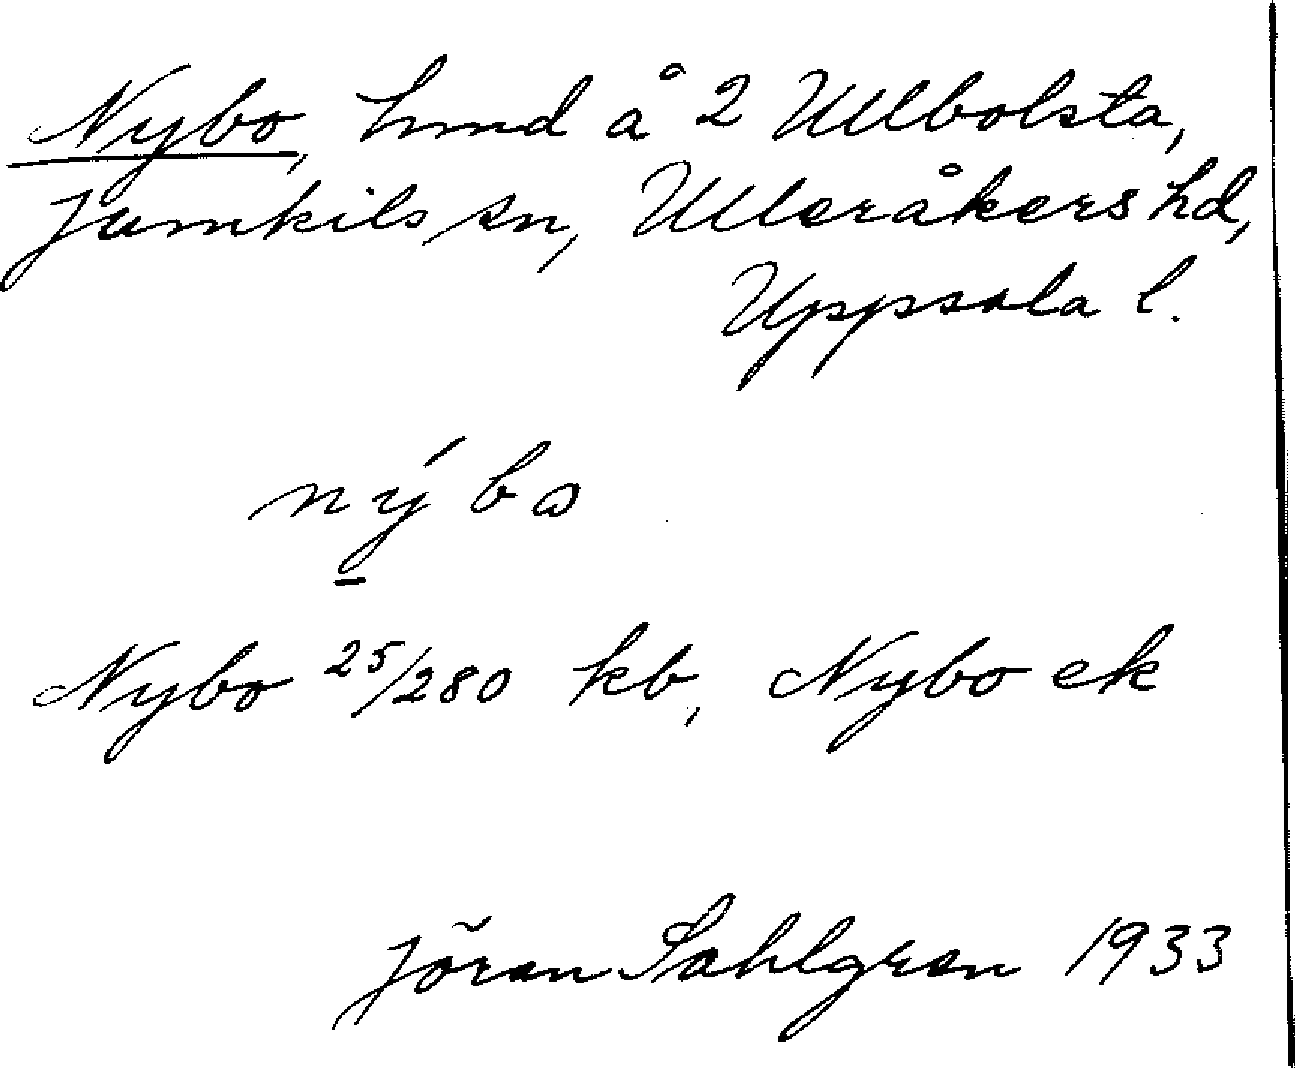 Nybo, lmd å 2 Ullbolsta,
Jumkils sn, Ulleråkers hd,
Uppsala l.
nýbω
Nybo 25/280 kb, Nybo ek
Jöran Sahlgren 1933